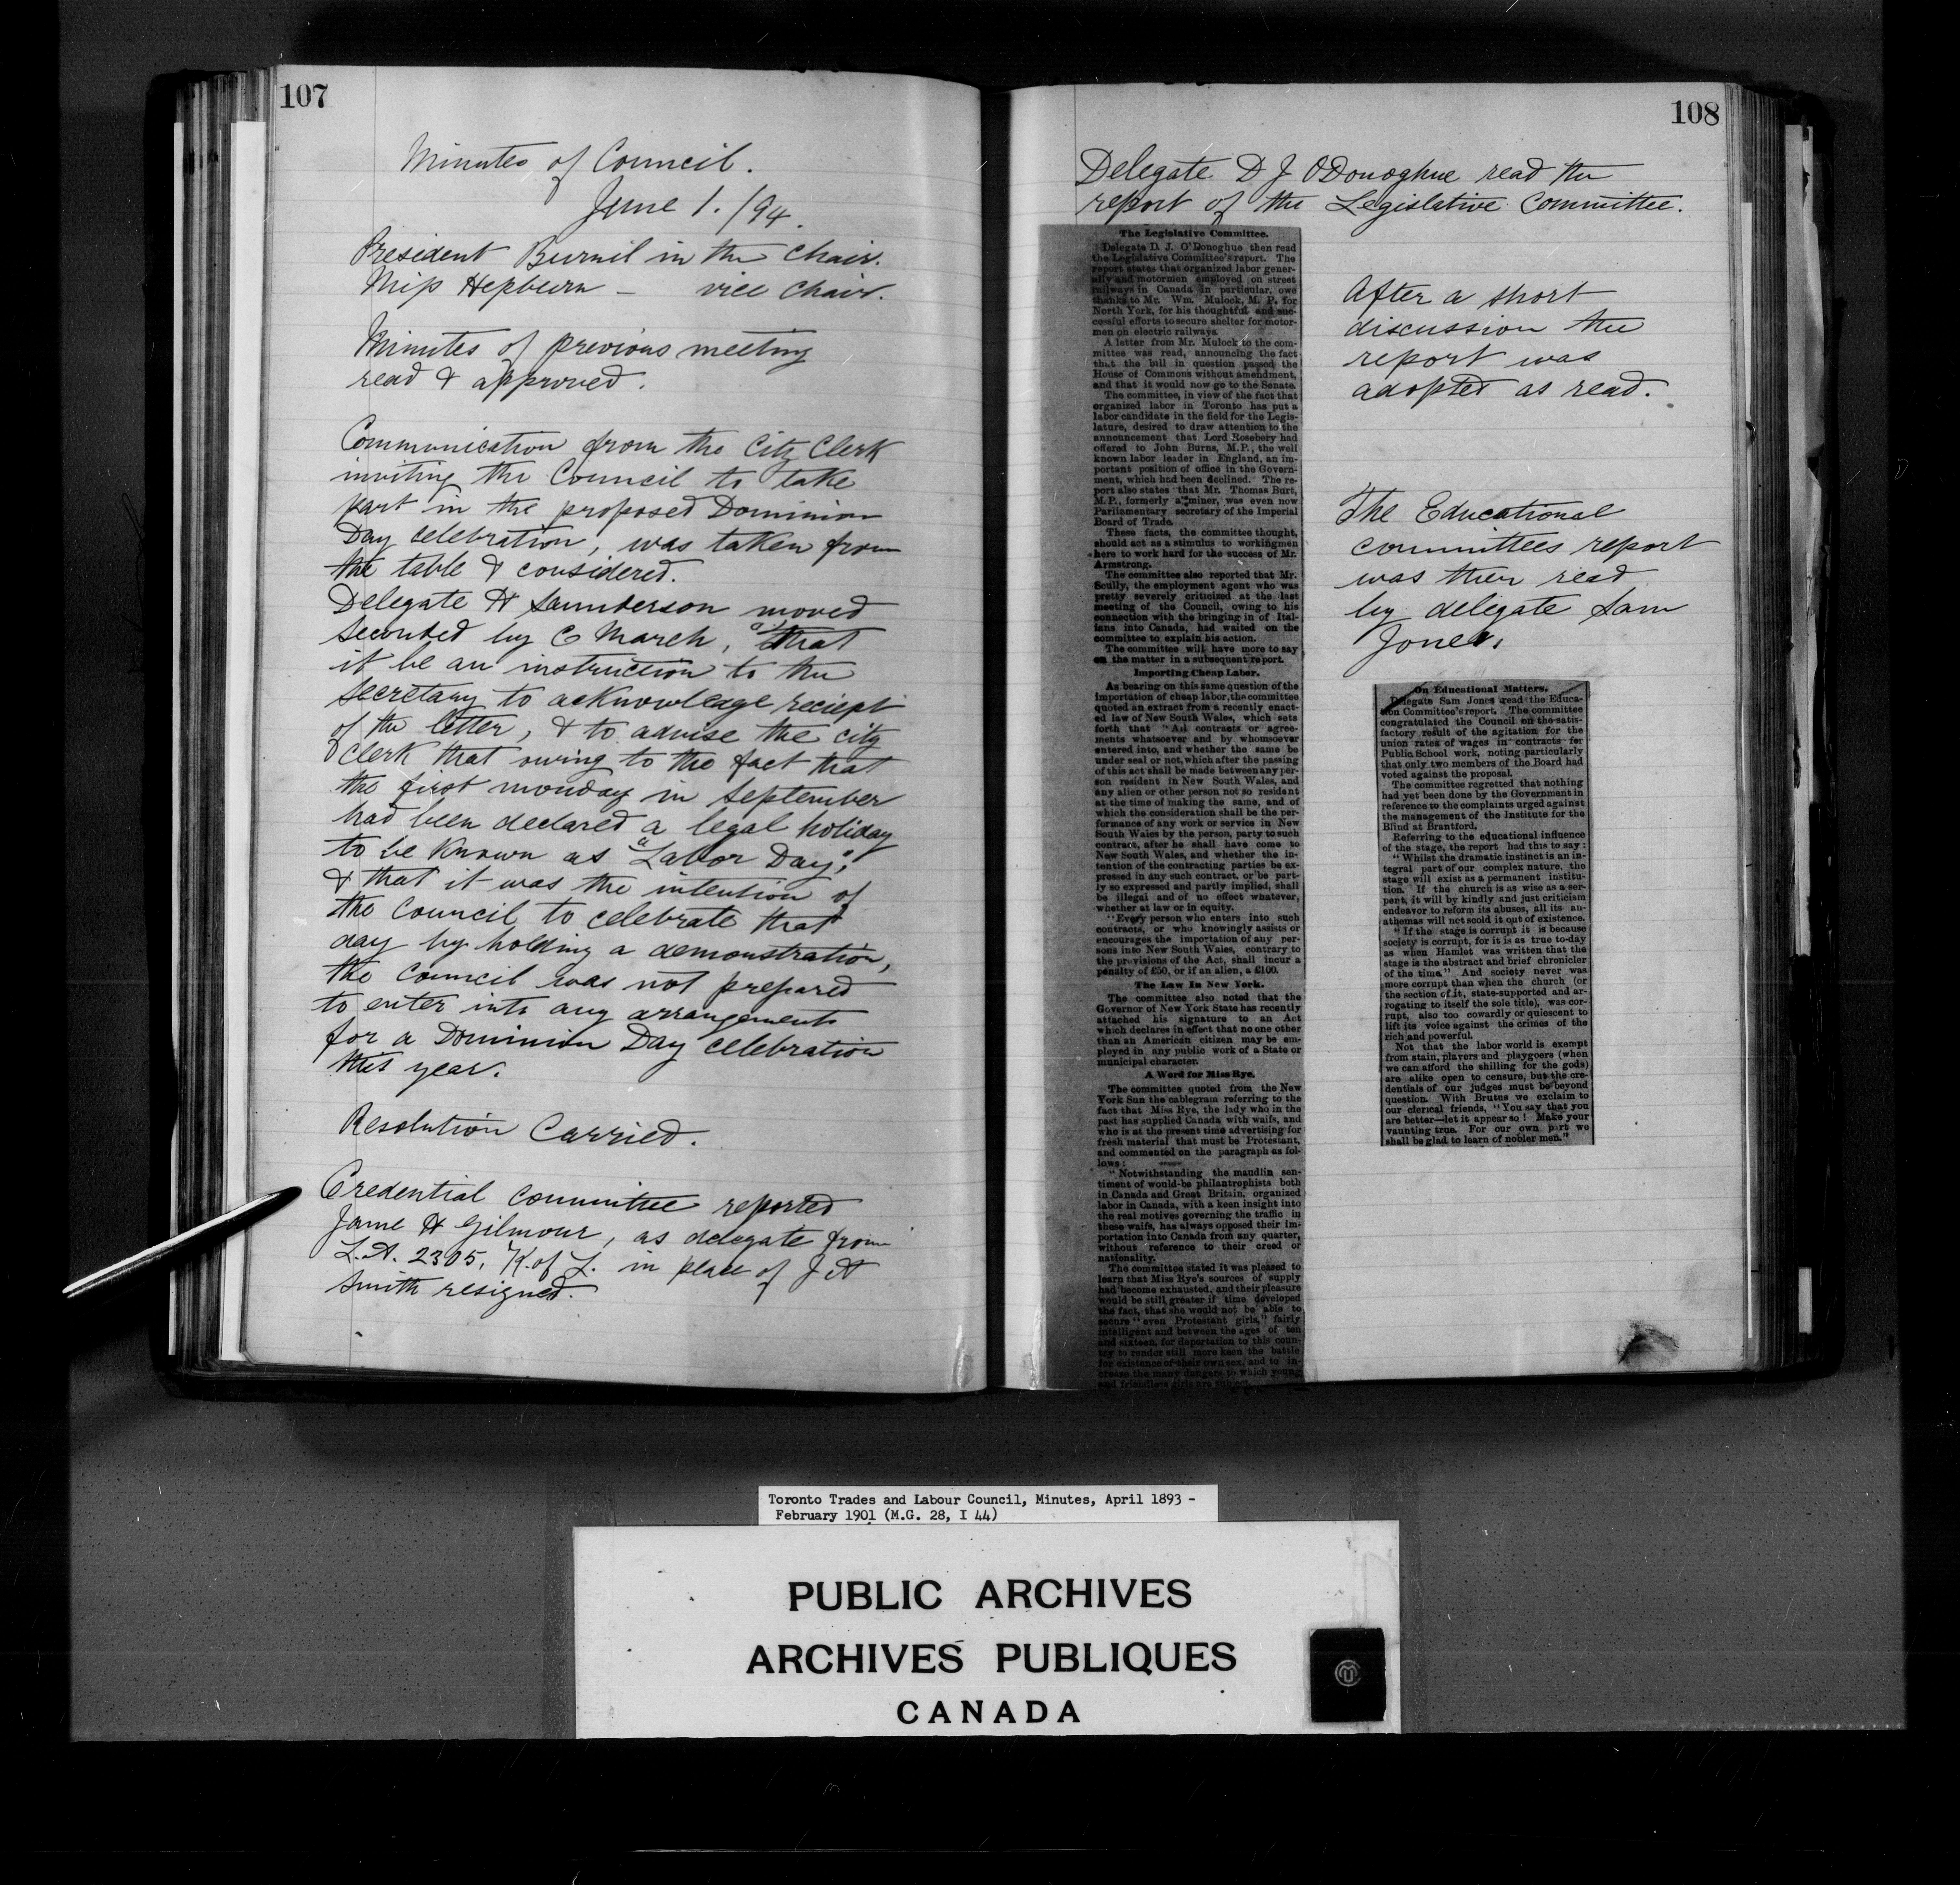 107
Minutes of Council.
June 1. /94.
President Burnil in the Chair.
Miss Hepburn - vice chair.
Minutes of previous meeting
read & approved.
Communication from the City Clerk
inviting the Council to take
part in the proposed Dominion
Day celebration, was taken from
the table & considered.
Delegate H Saunderson moved
seconded by C March, that
it be an instruction to the
secretary to acknowledge reciept
of the letter, & to advise the city
clerk that owing to the fact that
the first monday in September
had been declared a legal holiday
to be known as "Labor Day,"
& that it was the intention of
the Council to celebrate that
day by holding a demonstration,
the Council was not prepared
to enter into any arrangements
for a Dominion Day celebration
this year.
Resolution Carried.
Credential Committee reported
Jame H Gilmour, as delegate from
L.A. 2305, K. of L. in place of J A
Smith resigned.
108
Delegate D J O'Donoghue read the
report of the Legislative Committee.
The Legislative Committee.
Delegate D. J. O'Donoghue then read
the Legislative Committee's report. The
report states that organized labor gener-
ally and motormen employed on street
railways in Canada in particular, owe
thanks to Mr. Wm. Mulock, M. P. for
North York, for his thoughtful and suc-
cessful efforts to secure shelter for motor-
men on electric railways.
A letter from Mr. Mulock to the com-
mittee was read, announcing the fact
that the bill in question passed the
House of Commons without amendment,
and that it would now go to the Senate.
The committee, in view of the fact that
organized labor in Toronto has put a
labor candidate in the field for the Legis-
lature, desired to draw attention to the
announcement that Lord Rosebery had
offered to John Burns, M.P., the well
known labor leader in England, an im-
portant position of office in the Govern-
ment, which had been declined. The re-
port also states that Mr. Thomas Burt,
M.P., formerly a miner, was even now
Parliamentary secretary of the Imperial
Board of Trade.
These facts, the committee thought,
should act as a stimulus to workingmen
here to work hard for the success of Mr.
Armstrong.
The committee also reported that Mr.
Scully, the employment agent who was
pretty severely criticized at the last
meeting of the Council, owing to his
connection with the bringing in of Ital-
ians into Canada, had waited on the
committee to explain his action.
The committee will have more to say
on the matter in a subsequent report.
Importing Cheap Labor.
As bearing on this same question of the
importation of cheap labor, the committee
quoted an extract from a recently enact-
ed law of New South Wales, which sets
forth that "All contracts or agree-
ments whatsoever and by whomsoever
entered into, and whether the same be
under seal or not, which after the passing
of this act shall be made between any per-
son resident in New South Wales, and
any alien or other person not so resident
at the time of making the same, and of
which the consideration shall be the per-
formance of any work or service in New
South Wales by the person, party to such
contract, after he shall have come to
New South Wales, and whether the in-
tention of the contracting parties be ex-
pressed in any such contract, or be part-
ly so expressed and partly implied, shall
be illegal and of no effect whatever,
whether at law or in equity.
"Every person who enters into such
contracts, or who knowingly assists or
encourages the importation of any per-
sons into New South Wales, contrary to
the provisions of the Act, shall incur a
penalty of £50, or if an alien, a £100.
The Law In New York.
The committee also noted that the
Governor of New York State has recently
attached his signature to an Act
which declares in effect that no one other
than an American citizen may be em-
ployed in any public work of a State or
municipal character.
A Word for Miss Rye.
The committee quoted from the New
York Sun the cablegram referring to the
fact that Miss Rye, the lady who in the
past has supplied Canada with waifs, and
who is at the present time advertising for
fresh material that must be Protestant,
and commented on the paragraph as fol-
lows:
"Notwithstanding the maudlin sen-
timent of would-be philanthrophists both
in Canada and Great Britain, organized
labor in Canada, with a keen insight into
the real motives governing the traffic in
these waifs, has always opposed their im-
portation into Canada from any quarter,
without reference to their creed or
nationality.
The committee stated it was pleased to
learn that Miss Rye's sources of supply
had become exhausted, and their pleasure
would be still greater if time developed
the fact, that she would not be able to
secure "even Protestant girls," fairly
intelligent and between the ages of ten
and sixteen, for deportation to this coun-
try to render still more keen the battle
for existence of their own sex, and to in-
crease the many dangers to which young
and friendless girls are subject.
After a short
discussion the
report was
adopted as read.
The Educational
committees report
was then read
by delegate Sam
Jones.
On Educational Matters.
Delegate Sam Jones read the Educa-
tion Committee's report. The committee
congratulated the Council on the satis-
factory result of the agitation for the
union rates of wages in contracts for
Public School work, noting particularly
that only two members of the Board had
voted against the proposal.
The committee regretted that nothing
had yet been done by the Government in
reference to the complaints urged against
the management of the Institute for the
Blind at Brantford.
Referring to the educational influence
of the stage, the report had this to say:
"Whilst the dramatic instinct is an in-
tegral part of our complex nature, the
stage will exist as a permanent institu-
tion. If the church is as wise as a ser-
pent, it will by kindly and just criticism
endeavor to reform its abuses, all its an-
athemas will not scold it out of existence.
"If the stage is corrupt it is because
society is corrupt, for it is as true to-day
as when Hamlet was written that the
stage is the abstract and brief chronicler
of the time." And society never was
more corrupt than when the church (or
the section of it, state-supported and ar-
rogating to itself the sole title), was cor-
rupt, also too cowardly or quiescent to
lift its voice against the crimes of the
rich and powerful.
Not that the labor world is exempt
from stain, players and playgoers (when
we can afford the shilling for the gods)
are alike open to censure, but the cre-
dentials of our judges must be beyond
question. With Brutus we exclaim to
our clerical friends, "You say that you
are better—let it appear so! Make your
vaunting true. For our own part we
shall be glad to learn of nobler men."
Toronto Trades and Labour Council, Minutes, April 1893 -
February 1901 (M.G. 28, I 44)
PUBLIC ARCHIVES
ARCHIVES PUBLIQUES
CANADA